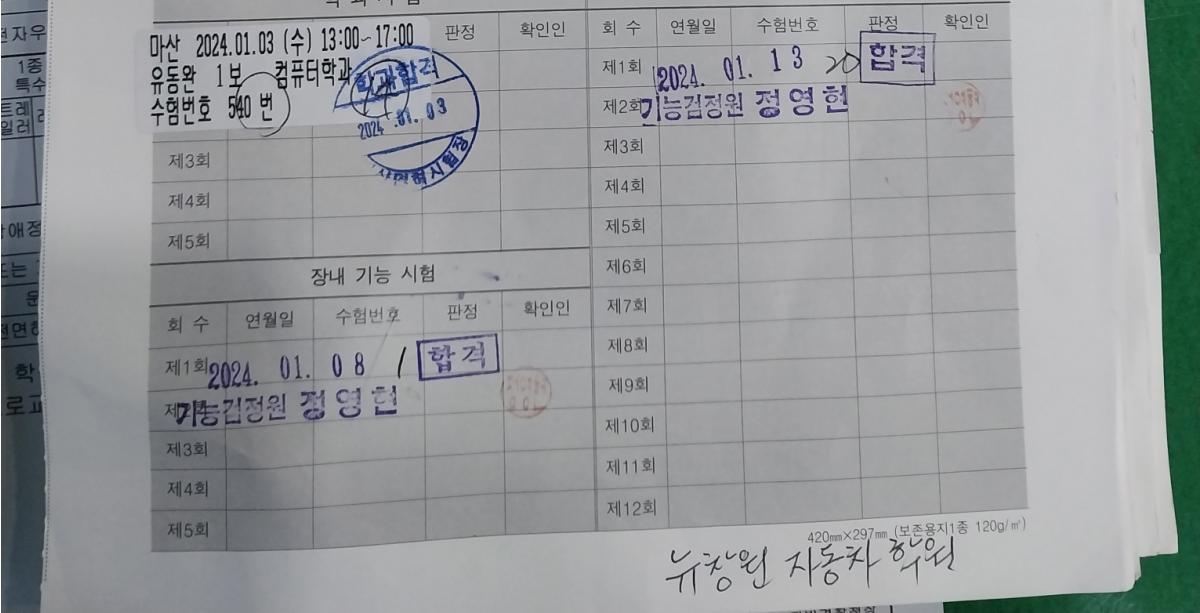 마산 2024.01.03 (수) 13:00~17:00
유동완 1보 컴퓨터학과
수험번호 540 번
학과합격
2024 .01. 03
판정 확인인
제3회
제4회
제5회
장내 기능 시험
회 수 연월일 수험번호 판정 확인인
제1회 2024. 01. 08 / 합격
기능검정원 정영헌
제3회
제4회
제5회
회 수 연월일 수험번호 판정 확인인
제1회 2024. 01. 13 20 합격
제2회 기능검정원 정영헌
제3회
제4회
제5회
제6회
제7회
제8회
제9회
제10회
제11회
제12회
420㎜×297㎜ (보존용지1종 120g/㎡)
뉴창원 자동차 학원
1종
특수
트레
일러